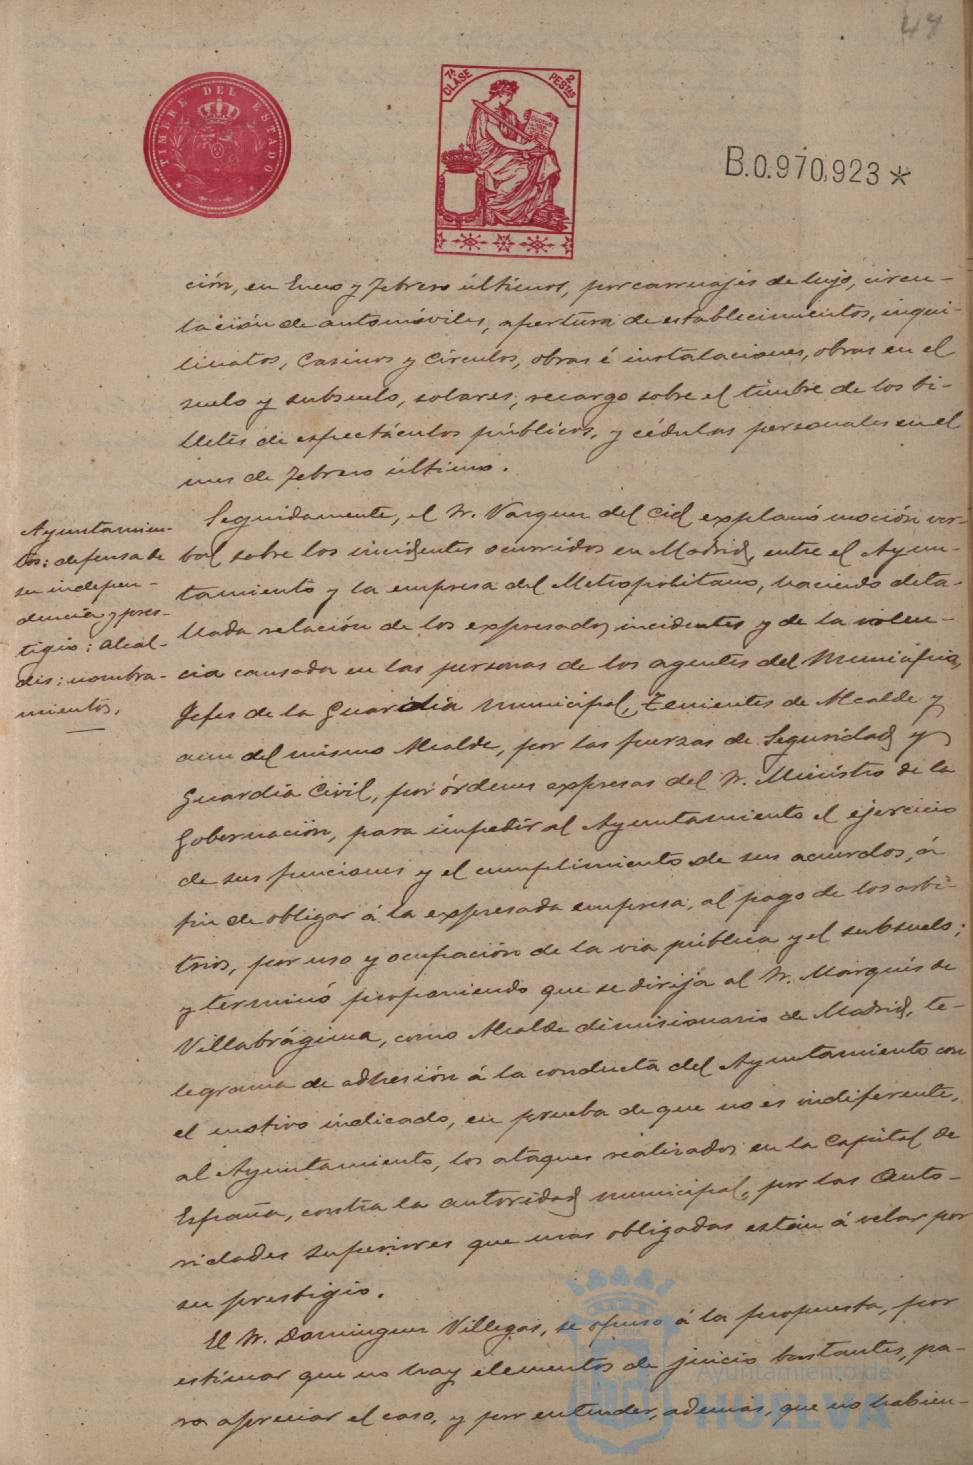 47
TIMBRE DEL ESTADO
7ª CLASE
2 PESTAS
B.0.970,923*
ción, en Enero y Febrero últimos, por carruajes de lujo, circu-
lación de automóviles, apertura de establecimientos, inqui-
linatos, Casinos y Círculos, obras é instalaciones, obras en el
suelo y subsuelo, solares, recargo sobre el timbre de los bi-
lletes de espectáculos públicos, y cédulas personales en el
mes de Febrero último.
Ayuntamien-
tos: defensa de
su indepen-
dencia y pres-
tigio: Alcal-
des: nombra-
mientos.
Seguidamente, el Sr. Vazquez del Cid explanó moción ver-
bal sobre los incidentes ocurridos en Madrid, entre el Ayun-
tamiento y la empresa del Metropolitano, haciendo deta-
llada relación de los expresados incidentes y de la violen-
cia causada en las personas de los agentes del Municipio,
Jefes de la Guardia municipal, Tenientes de Alcalde y
aun del mismo Alcalde, por las fuerzas de Seguridad y
Guardia Civil, por órdenes expresas del Sr. Ministro de la
Gobernación, para impedir al Ayuntamiento el ejercicio
de sus funciones y el cumplimiento de sus acuerdos, á
fin de obligar á la expresada empresa, al pago de los arbi-
trios, por uso y ocupación de la via pública y el subsuelo;
y terminó proponiendo que se dirija al Sr. Marqués de
Villabrágima, como Alcalde dimisionario de Madrid, te-
legrama de adhesión á la conducta del Ayuntamiento con
el motivo indicado, en prueba de que no es indiferente,
al Ayuntamiento, los ataques realizados en la Capital de
España, contra la autoridad municipal, por las Auto-
ridades superiores que mas obligadas están á velar por
su prestigio.
El Sr. Dominguez Villegas, se opuso á la propuesta, por
estimar que no hay elementos de juicio bastantes, pa-
ra apreciar el caso, y por entender, además, que no habien-
Ayuntamiento de
HUELVA